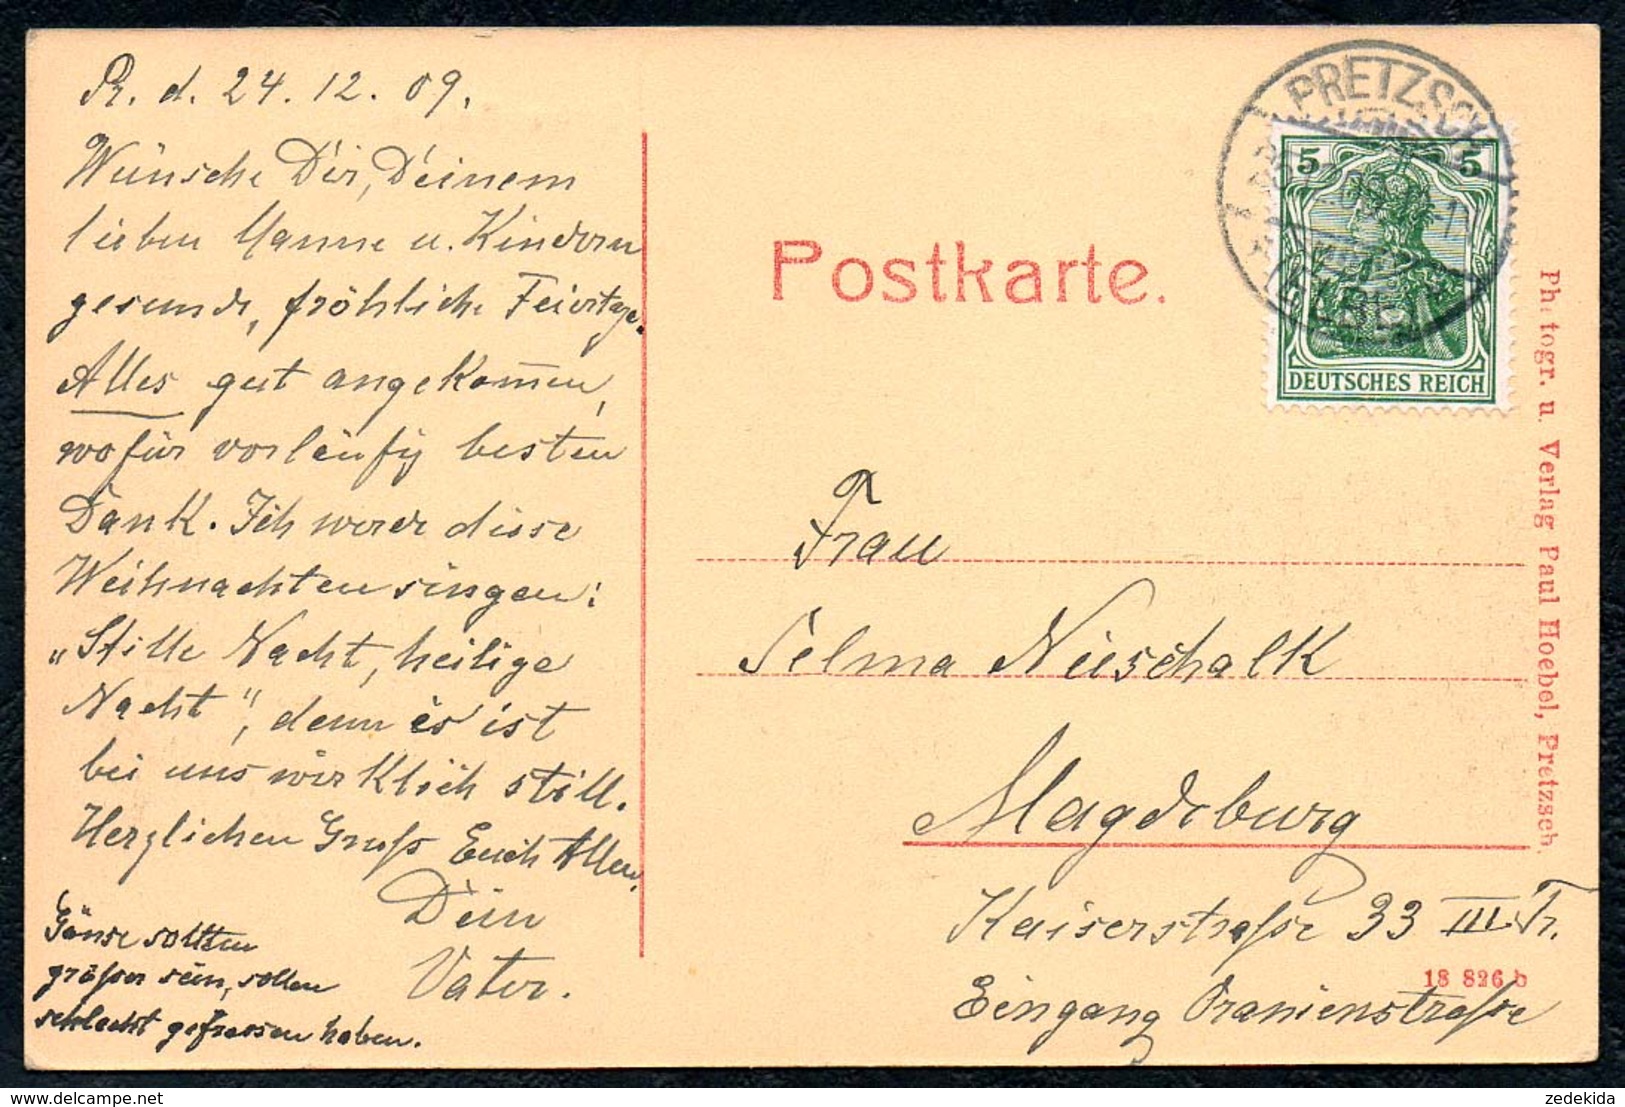 Pr. d. 24. 12. 09.
Wünsche Dir, Deinem
lieben Manne u. Kindern
gesunde, fröhliche Feiertage.
Alles gut angekom̄en,
wofür vorläufig besten
Dank. Ich werde diese
Weihnachten singen:
„Stille Nacht, heilige
Nacht", denn es ist
bei uns wirklich still.
Herzlichen Gruß Euch Allen,
Dein
Vater.
Gänse sollten
größer sein, sollen
schlecht gefressen haben.
Postkarte.
PRETZSCH
5 5
DEUTSCHES REICH
Frau
Selma Nieschalk
Magdeburg
Kaiserstraße 33 III Tr.
Eingang Oranienstraße
18 826 b
Photogr. u. Verlag Paul Hoebel, Pretzsch.
zedekida